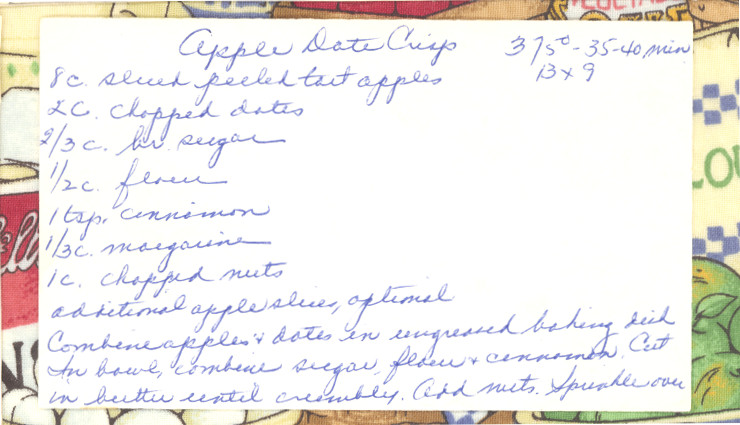 Apple Date Crisp 375° - 35-40 min
13 x 9
8 c. sliced peeled tart apples
2 C. chopped dates
2/3 c. br. sugar
1/2 c. flour
1 tsp. cinnamon
1/3 c. margarine
1 c. chopped nuts
additional apple slices, optional
Combine apples & dates in ungreased baking dish
In bowl, combine sugar, flour & cinnamon. Cut
in butter until crumbly. Add nuts. Sprinkle over